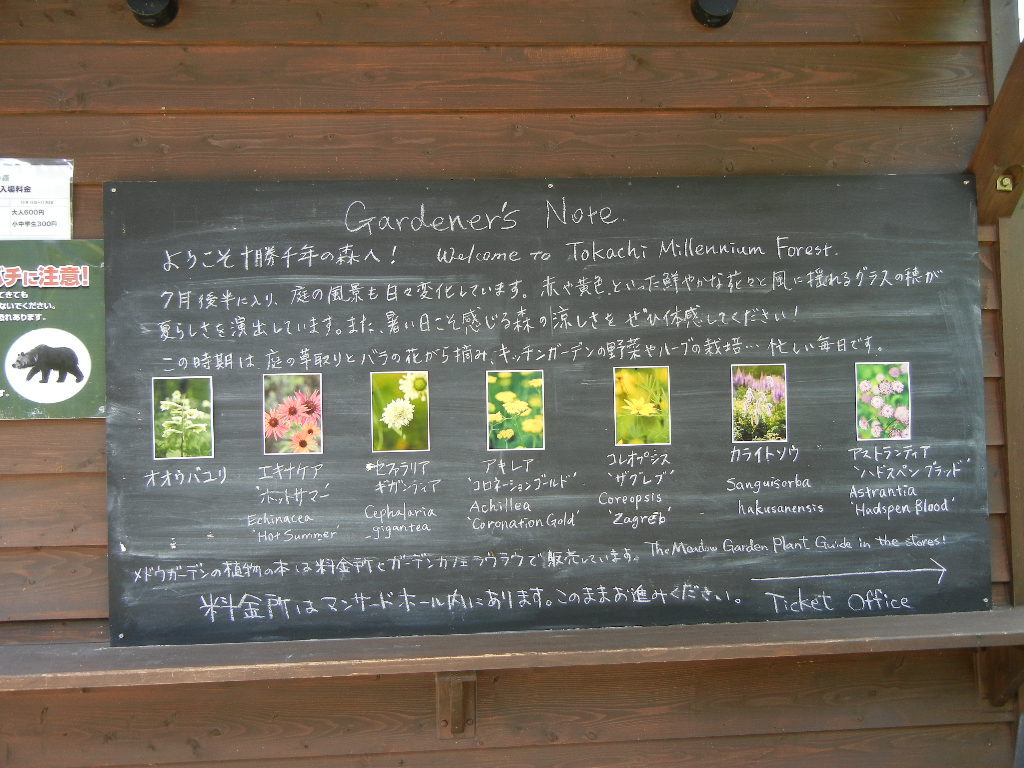 入場料金
大人600円
小中学生300円
バチに注意!
Gardener's Note.
ようこそ十勝千年の森へ! Welcome to Tokachi Millennium Forest.
7月後半に入り、庭の風景も日々変化しています。赤や黄色といった鮮やかな花々と風に揺れるグラスの穂が
夏らしさを演出しています。また、暑い日こそ感じる森の涼しさをぜひ体感してください!
この時期は庭の草取りとバラの花がら摘み、キッチンガーデンの野菜やハーブの栽培…忙しい毎日です。
オオウバユリ
エキナケア
'ホットサマー'
Echinacea
'Hot Summer'
セファラリア
ギガンティア
Cephalaria
gigantea
アキレア
'コロネーションゴールド'
Achillea
'Coronation Gold'
コレオプシス
'ザグレブ'
Coreopsis
'Zagreb'
カライトソウ
Sanguisorba
hakusanensis
アストランティア
'ハドスペンブラッド'
Astrantia
'Hadspen Blood'
メドウガーデンの植物の本は料金所とガーデンカフェラウラウで販売しています。 The Meadow Garden Plant Guide in the stores!
料金所はマンサードホール内にあります。このままお進みください。 Ticket Office